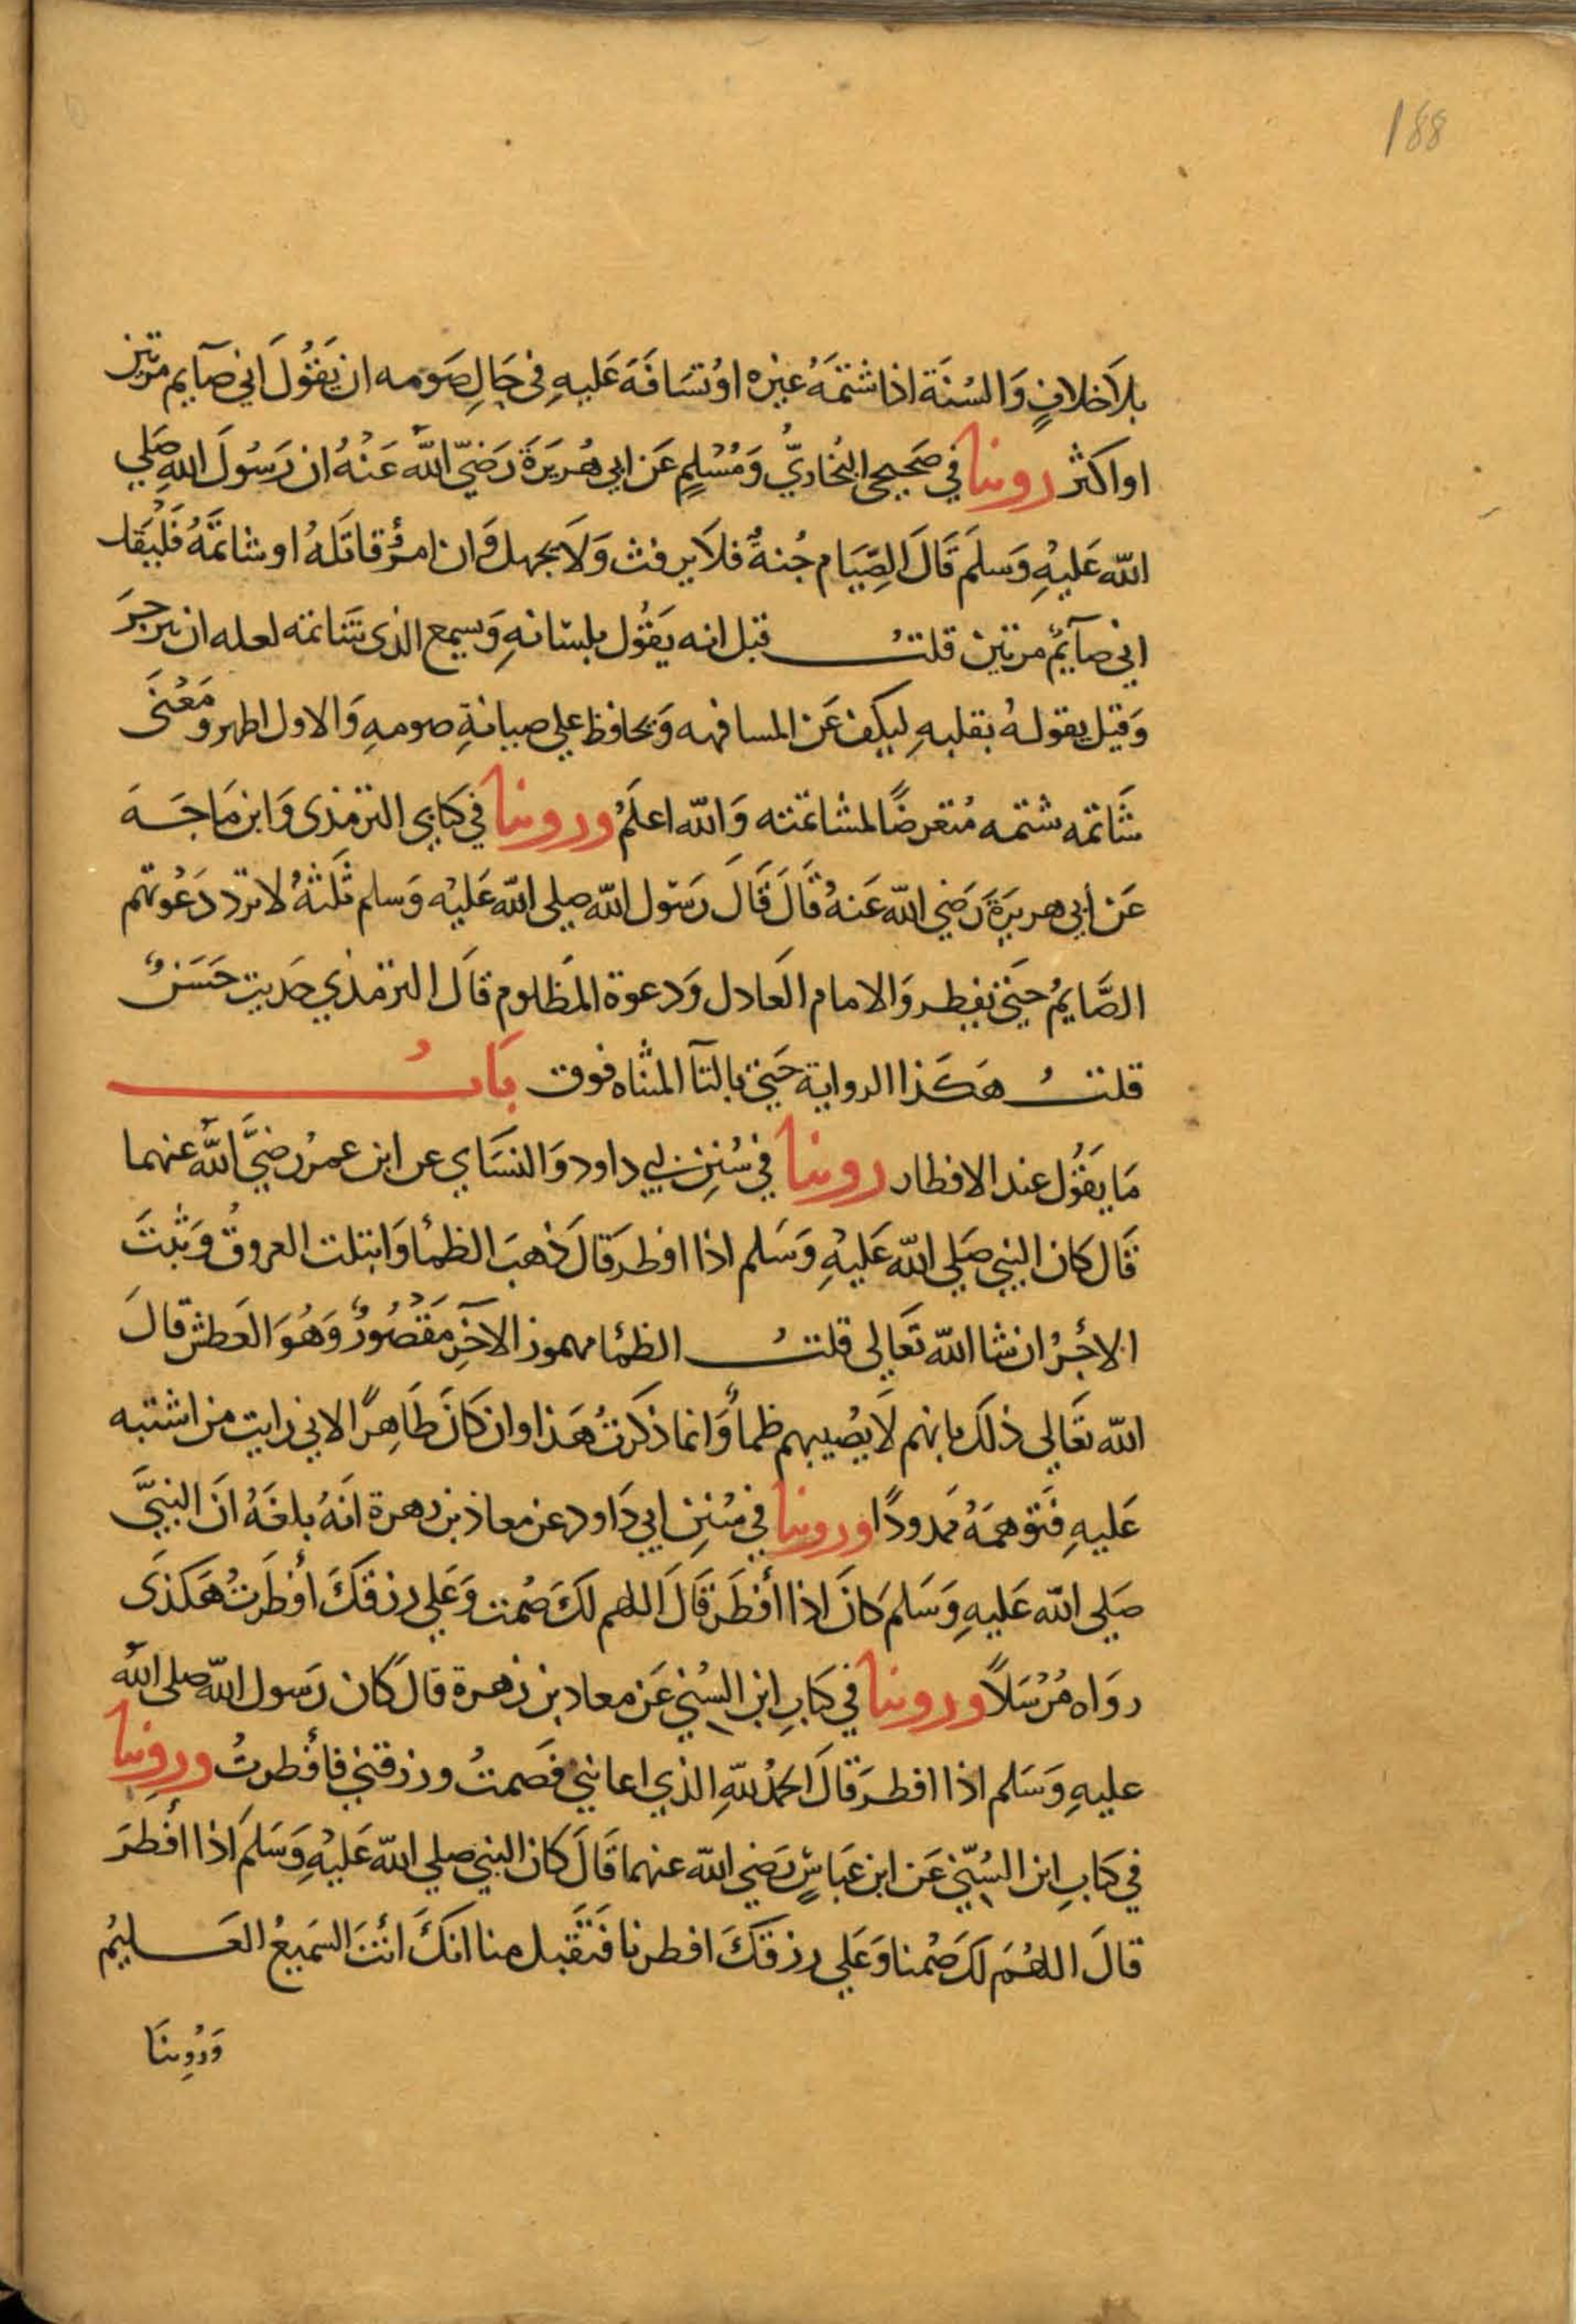 188
بلَا خلافٍ وَالسُنَة اذا شتمَهُ غيره اوْ تسَافَهَ عَليهِ في حَالِ صَومه ان يَقُولَ اني صآيم مرتين
او اكثر روينا في صَحيحي البُخاريّ وَمُسْلمٍ عَن ابي هُريَرَة رَضيّ اللَّه عَنْهُ ان رَسُولَ اللهِ صَلي
اللّه عَليْهِ وَسلمَ قَالَ الصِّيَام جُنةٌ فلاَ يرفث وَلَا يجهل وَان امرُؤٌ قاتَلهُ او شاتمَهُ فَليْقل
اني صآيمٌ مرتين قلتُ قيل انه يَقُول بلسَانهِ وَيسمع الذي شَاتمه لعله ان ينزجرَ
وَقيل يقولهُ بقلبهِ ليكف عَن المسافهه وَيحافظ علي صيانةِ صومهِ وَالاول اظهر وَمَعْنَى
شَاتمه شتمه مُتعرضًا لمشاتمته وَاللّه اعلَمُ وروينا في كتابي الترمذي وَابن مَاجَهَ
عَن أبي هريرَة رَضي اللّه عَنهُ قَالَ قَالَ رَسُول اللّه صلي اللّه عَليْه وَسلم ثَلثةٌ لا ترد دَعْوتهم
الصَّايمُ حَتي يفطر وَالامام العَادل وَدعوة المَظلوم قالَ الترمذي حَديث حَسَنٌ
قلتُ هَكَذا الرواية حَتي بالتآ المثناه فوق بَابُ
مَا يَقُول عند الافطار روينا في سُنِن ابي داود وَالنسَاي عن ابن عمرُ رضيَّ اللَّه عنهما
قَال كان النبي صَلي اللّه عَليهِ وَسَلم اذا افطرَ قالَ ذهبَ الظمأ وَابتلت العروقُ وَثبتَ
الاجْرُ ان شا اللّه تَعَالي قلتُ الظمأ مهموز الآخِر مَقْصُورٌ وَهُوَ العَطش قالَ
اللّه تَعَالي ذلكَ بانهم لَا يصُيبهم ظمأٌ وَانما ذكرتُ هَذا وان كَانَ ظَاهِرًا لاني رايت من اشتبه
عَليهِ فَتوَهمَهُ ممدودًا وروينا في سُنِن ابي دَاود عن معاذ بن زهرة انَهُ بلغَهُ انَ النبيَّ
صَلي اللّه عَليهِ وَسَلمَ كانَ اذا أفطَرَ قَالَ اللهم لكَ صُمت وَعَلي رزقكَ أفطَرتُ هَكذَى
روَاه مُرْسَلاً وروينا في كتَابِ ابن السُني عَن معاد بن زهرة قالَ كان رَسول اللّه صلي اللَّه
عليهِ وَسَلم اذا افطرَ قالَ الحمدُ للّهِ الذي اعانني فَصمتُ ورزقني فأفطرتُ وروينا
في كتابِ ابن السُنّي عَن ابن عَبَاسٍ رَضي اللّه عنهما قَالَ كان النبي صلي اللّه عَليْهِ وَسَلمَ اذا أفطرَ
قالَ اللهُمَ لكَ صُمنا وَعَلي رزقكَ افطرنا فَتَقَبل منا انكَ أنتَ السَميعُ العَليُم
وَرُوِينَا